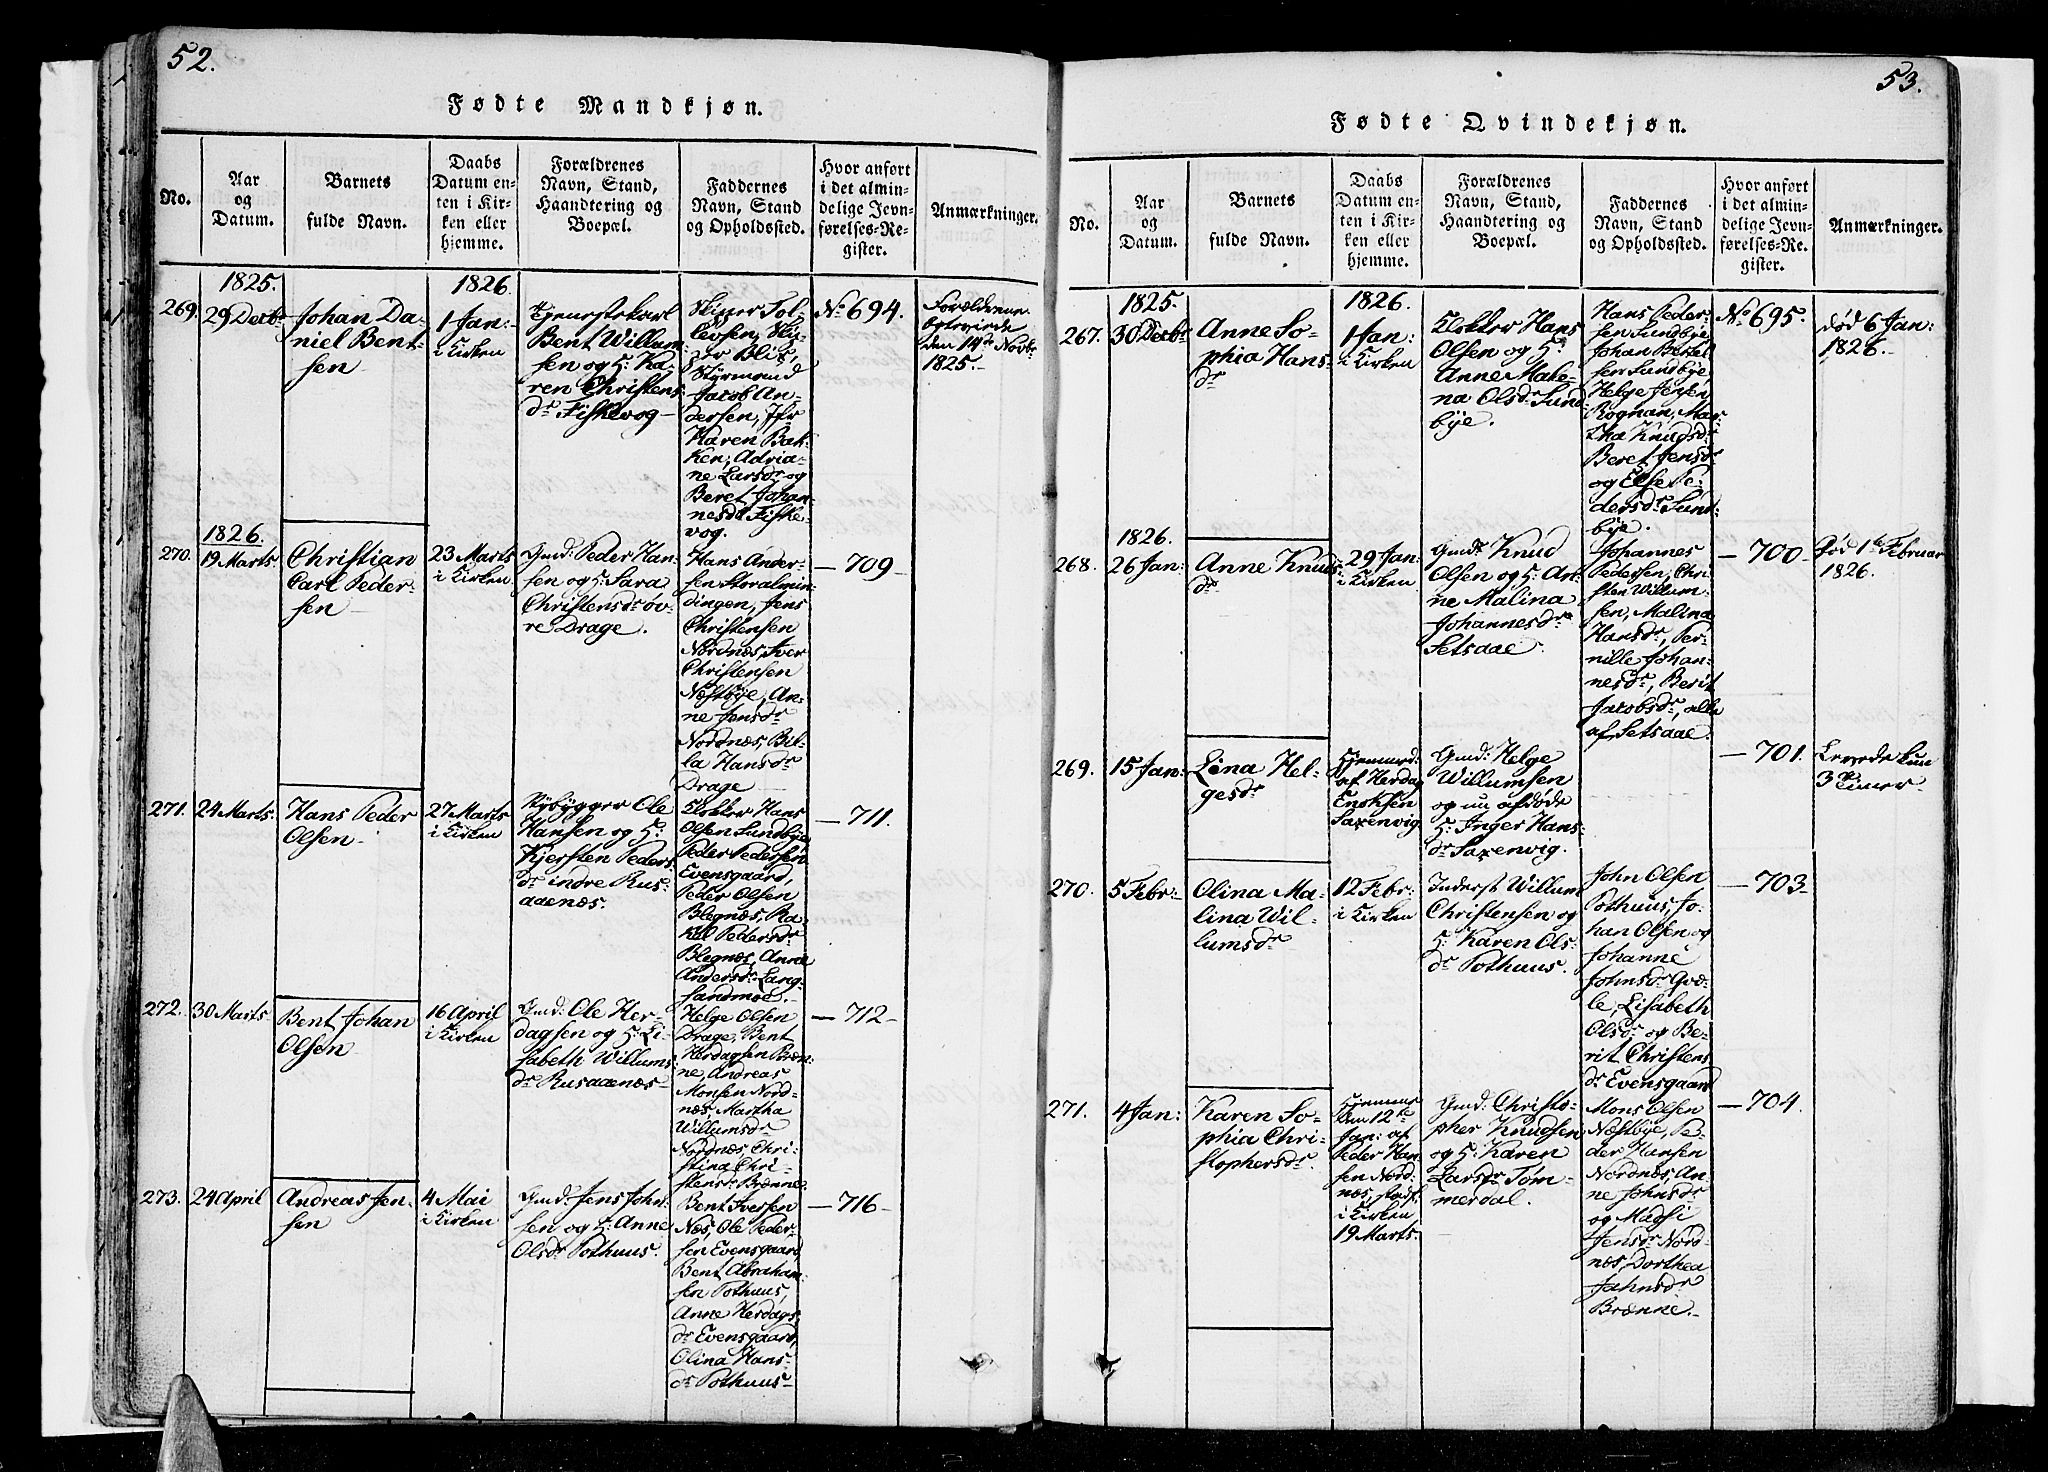 52.
Fødte Mandkjøn.
No.
Aar
og
Datum.
Barnets
fulde Navn.
Daabs
Datum en-
ten i Kir-
ken eller
hjemme.
Forældrenes
Navn, Stand,
Haandtering og
Boepæl.
Faddernes
Navn, Stand
og Opholdssted.
Hvor anført
i det almin-
delige Jevn-
førelses-Re-
gister.
Anmærkninger.
1825.
269.
29 Decbr
Johan Da-
niel Bent-
sen
1826.
1 Jan:
i Kirken
Tjenestekarl
Bent Willum-
sen og H: Ka-
ren Christens-
dr Fiskevog
Skizer Tol-
levsen, Ski-
zer Blix,
Styrmand
Jacob An-
dersen, Jfr
Karen Bak-
ken, Adria-
ne Larsdr og
Beret Johan-
nesdr Fiske-
vog.
No 694.
Forældrene
den 14de Novbr
1825.
1826.
270.
19 Marts
Christian
Carl Peder-
sen
23 Marts
i Kirken
Gmd: Peder Han-
sen og H: Sara
Christensdr øv-
re Drage.
Hans Ander-
sen Storalmin-
dingen, Jens
Christensen
Nordnæs, Iver
Christensen
Næstbye, An-
ne Jensdr
Nordnæs, Bil-
la Hansdr
Drage
709
271.
24 Marts
Hans Peder
Olsen
27 Marts
i Kirken
Rybygger Ole
Hansen og H:
Kjersten Peders-
dr indre Rus-
aaenæs.
Klokker Hans
Olsen Sundbye
Peder Pedersen
Evensgaard,
Peder Olsen
Blegnæs, Ra-
kel Pedersdr
Blegnæs, Anne
Andersdr Lang-
sandmoe.
711.
272.
30 Marts
Bent Johan
Olsen
16 April
i Kirken
Gmd: Ole Her-
dagsen og H: Li-
sabeth Willums-
dr Rusaaenæs
Helge Olsen
Drage, Bent
Herdagsen Bræn-
ne, Andreas
Monsen Nord-
næs, Martha
Willumsdr
Nordnæs, Chri-
stina Chri-
stensdr Brænne
712
273.
24 April
Andreas Jen-
sen
4 Mai
i Kirken
Gmd: Jens John-
sen og H: Anne
Olsdr Pothuus.
Bent Iversen
Næs, Ole Peder-
sen Evensgaard
Bent Abraham-
sen Pothuus,
Anne Herdags-
dr Evensgaard,
Olina Hans-
dr Pothuus
716
53.
Fødte Qvindekjøn.
No.
Aar
og
Datum.
Barnets
fulde Navn.
Daabs
Datum en-
ten i Kir-
ken eller
hjemme.
Forældrenes
Navn, Stand,
Haandtering og
Boepæl.
Faddernes
Navn, Stand
og Opholdssted.
Hvor anført
i det almin-
delige Jevn-
førelses-Re-
gister.
Anmærkninger.
1825.
267.
30 Decbr
Anne So-
phia Hans-
dr
1826.
1 Jan:
i Kirken
Klokker Hans
Olsen og H:
Anne Male-
na Olsdr Sund-
bye.
Hans Peder-
sen Sundbye
Johan Bertel-
sen Sundbye
Helge Jensen
Rognan, Mar-
tha Knudsdr
Beret Jensdr
og Else Pe-
dersdr Sund-
bye.
No 695.
død 6 Jan:
1826.
1826.
268.
26 Jan:
Anne Knuds-
dr
29 Jan:
i Kirken
Gmd: Knud
Olsen og H: An-
ne Malina
Johannesdr
Setsaae.
Johannes
Pedersen, Chri-
sten Willum-
sen, Malina
Hansdr, Per-
nille Johan-
nesdr, Berit
Jacobsdr, alle
af Setsaae.
700
død 1te Februar
1826.
269.
15 Jan:
Lena Hel-
gesdr
Hjemmed:
af Herdag
Enoksen
Saxenvig
Gmd: Helge
Willumsen
og nu afdøde
H: Inger Hans-
dr Saxenvig.
701.
Levede kun
3 Timer
270.
5 Febr:
Olina Ma-
lina Wil-
lumsdr
12 Febr:
i Kirken
Inderst Willum
Christensen og
H: Karen Ols-
dr Pothuus.
John Olsen
Pothuus, Jo-
han Olsen og
Johanne
Johnsdr Gvæ-
le, Lisabeth
Olsdr og Be-
rit Christens-
dr Evensgaard
703
271.
4 Jan:
Karen So-
phia Chri-
stophersdr
Hjemme
den 12te
Jan: af
Peder Han-
sen Nord-
næs, stadf.
i Kirken
19 Marts.
Gmd: Christo-
pher Knudsen
og H: Karen
Larsdr Tøm-
merdal.
Mons Olsen
Næstbye, Pe-
der Hansen
Nordnæs, An-
ne Johnsdr
og Madsi
Jensdr Nord-
næs, Dorthea
Jahnsdr
Brænne.
704.